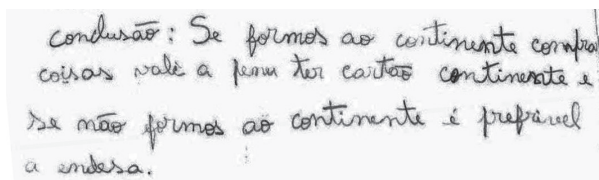 conclusão: Se formos ao continente compra
coisas vale a pena ter cartão continente e
se não formos ao continente é prefrivel
a endesa.